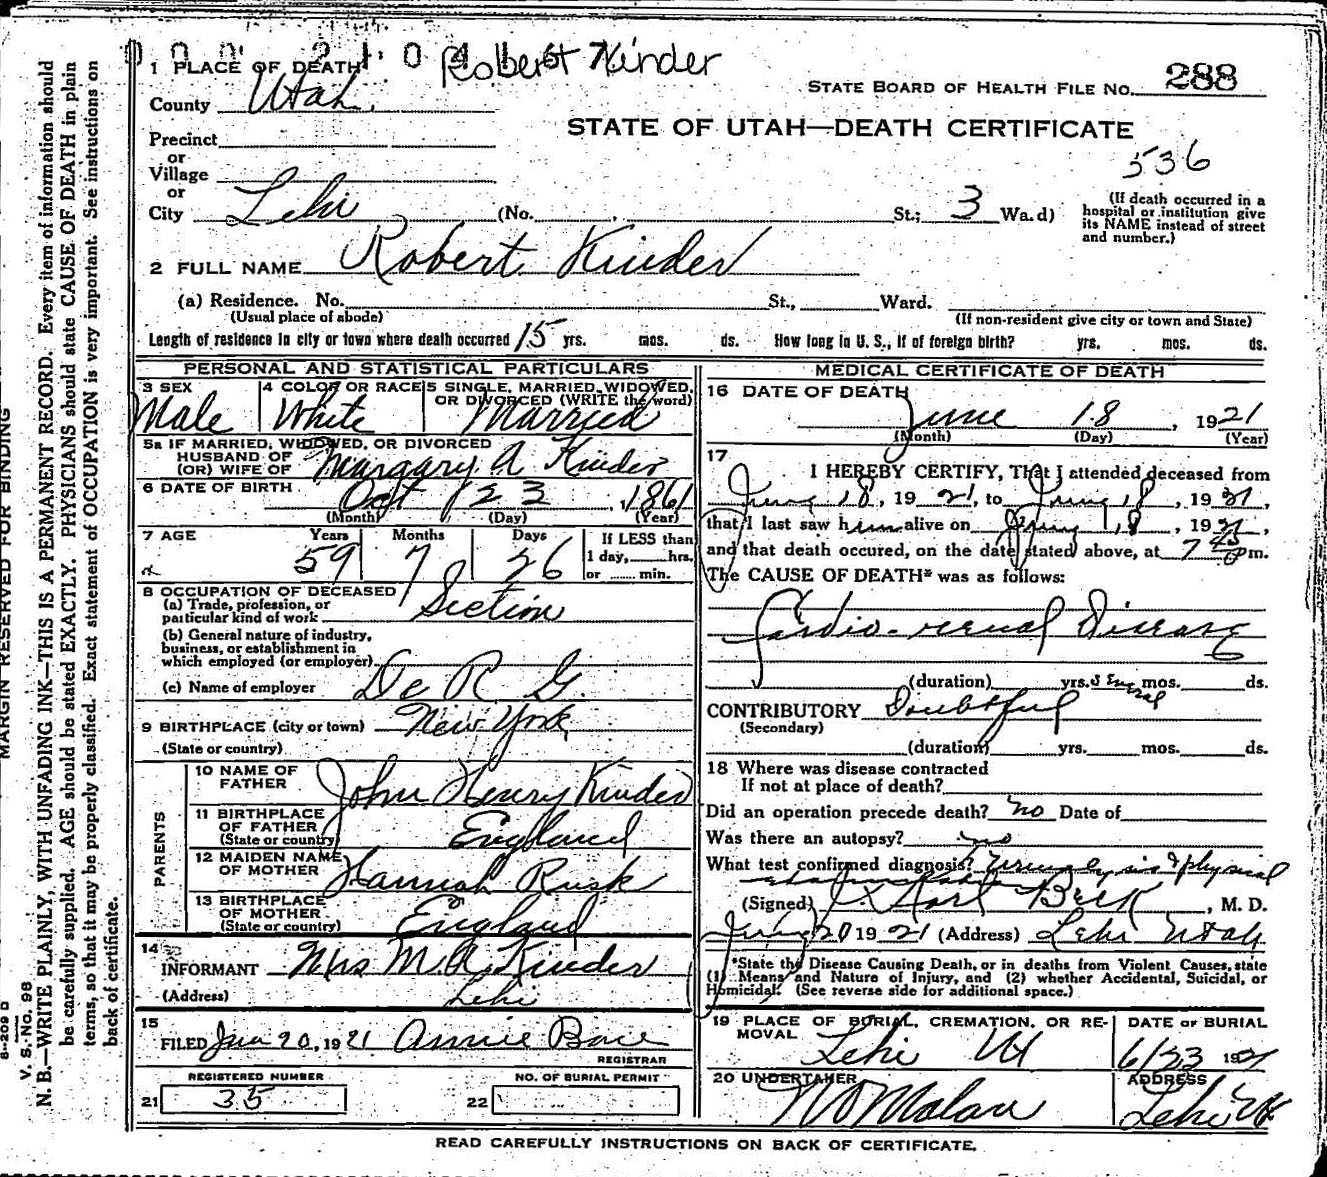 Robert Kinder
1 PLACE OF DEATH
County Utah
STATE BOARD OF HEALTH FILE No. 288
STATE OF UTAH—DEATH CERTIFICATE
536
Precinct
or
Village
or
City Lehi (No. , St.; 3 Wa.d)
(If death occurred in a hospital or institution give its NAME instead of street and number.)
2 FULL NAME Robert Kinder
(a) Residence. No. St., Ward.
(Usual place of abode) (If non-resident give city or town and State)
Length of residence in city or town where death occurred 15 yrs. mos. ds. How long in U. S., if of foreign birth? yrs. mos. ds.
PERSONAL AND STATISTICAL PARTICULARS
3 SEX Male
4 COLOR OR RACE White
5 SINGLE, MARRIED, WIDOWED, OR DIVORCED (WRITE the word) Married
5a IF MARRIED, WIDOWED, OR DIVORCED
HUSBAND OF
(OR) WIFE OF Margary A Kinder
6 DATE OF BIRTH Oct 23, 1861
(Month) (Day) (Year)
7 AGE Years Months Days
59 7 26
If LESS than
1 day, hrs.
or min.
8 OCCUPATION OF DECEASED
(a) Trade, profession, or
particular kind of work Section
(b) General nature of industry,
business, or establishment in
which employed (or employer)
(c) Name of employer De R G.
9 BIRTHPLACE (city or town) New York
(State or country)
PARENTS
10 NAME OF FATHER John Henry Kinder
11 BIRTHPLACE OF FATHER (State or country) England
12 MAIDEN NAME OF MOTHER Hannah Rusk
13 BIRTHPLACE OF MOTHER (State or country) England
14
INFORMANT Mrs M. A. Kinder
(Address) Lehi
15
FILED Jun 20, 1921 Annie
REGISTRAR
REGISTERED NUMBER
21 35
NO. OF BURIAL PERMIT
22
MEDICAL CERTIFICATE OF DEATH
16 DATE OF DEATH
June 18, 1921
(Month) (Day) (Year)
17 I HEREBY CERTIFY, That I attended deceased from
June 18, 1921, to June 18, 1921,
that I last saw him alive on June 18, 1921,
and that death occured, on the date stated above, at 7 45 pm.
The CAUSE OF DEATH* was as follows:
Cardio-renal Disease
(duration) yrs. Several mos. ds.
CONTRIBUTORY Doubtful
(Secondary)
(duration) yrs. mos. ds.
18 Where was disease contracted
If not at place of death?
Did an operation precede death? no Date of
Was there an autopsy? no
What test confirmed diagnosis? Urinalysis & physical
(Signed) Karl Beck, M. D.
June 20 1921 (Address) Lehi Utah
*State the Disease Causing Death, or in deaths from Violent Causes, state
(1) Means and Nature of Injury, and (2) whether Accidental, Suicidal, or
Homicidal. (See reverse side for additional space.)
19 PLACE OF BURIAL, CREMATION, OR REMOVAL Lehi Ut
DATE OF BURIAL 6/23 1921
20 UNDERTAKER Malan
ADDRESS Lehi Ut
READ CAREFULLY INSTRUCTIONS ON BACK OF CERTIFICATE.
MARGIN RESERVED FOR BINDING
V. S. NO. 98
N. B.—WRITE PLAINLY, WITH UNFADING INK—THIS IS A PERMANENT RECORD. Every item of information should
be carefully supplied. AGE should be stated EXACTLY. PHYSICIANS should state CAUSE OF DEATH in plain
terms, so that it may be properly classified. Exact statement of OCCUPATION is very important. See instructions on
back of certificate.